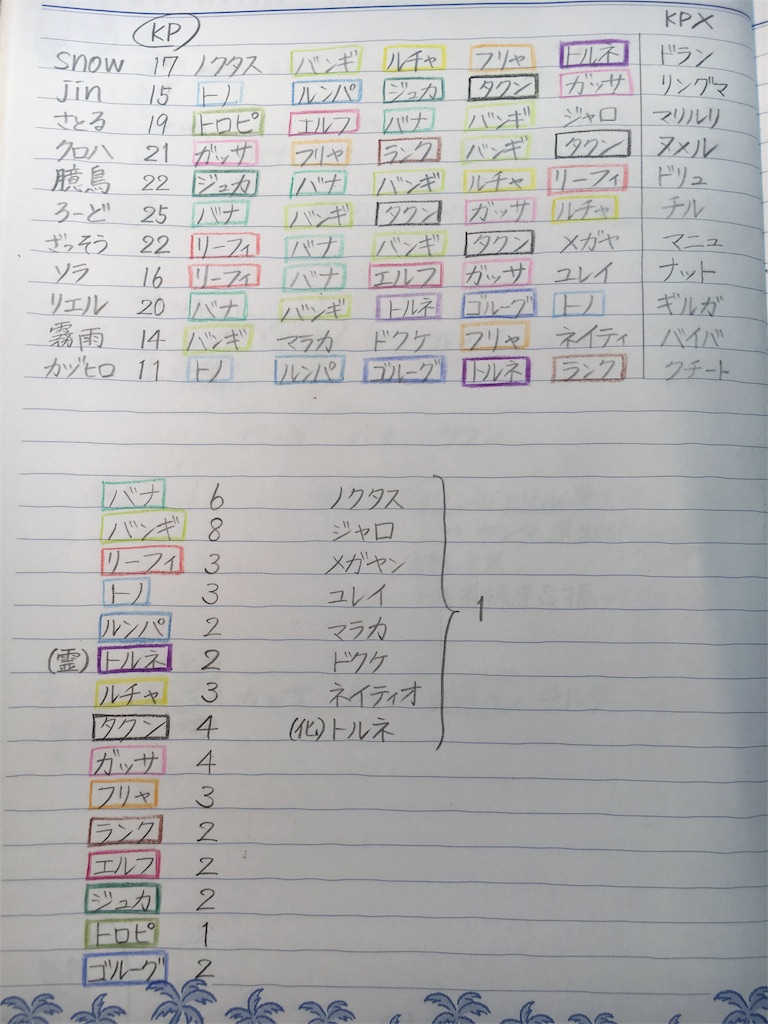 KP KPX
snow 17 ノクタス バンギ ルチャ フリャ トルネ ドラン
jin 15 トノ ルンパ ジュカ タクン ガッサ リングマ
さとる 19 トロピ エルフ バナ バンギ ジャロ マリルリ
クロハ 21 ガッサ フリャ ランク バンギ タクン ヌメル
臆鳥 22 ジュカ バナ バンギ ルチャ リーフィ ドリュ
ろーど 25 バナ バンギ タクン ガッサ ルチャ チル
ざっそう 22 リーフィ バナ バンギ タクン メガヤ マニュ
ソラ 16 リーフィ バナ エルフ ガッサ ユレイ ナット
リエル 20 バナ バンギ トルネ ゴルーグ トノ ギルガ
霧雨 14 バンギ マラカ ドクケ フリャ ネイティ バイバ
カヅヒロ 11 トノ ルンパ ゴルーグ トルネ ランク クチート
バナ 6 ノクタス
バンギ 8 ジャロ
リーフィ 3 メガヤン
トノ 3 ユレイ
ルンパ 2 マラカ 1
(霊) トルネ 2 ドクケ
ルチャ 3 ネイティオ
タクン 4 (化)トルネ
ガッサ 4
フリャ 3
ランク 2
エルフ 2
ジュカ 2
トロピ 1
ゴルーグ 2